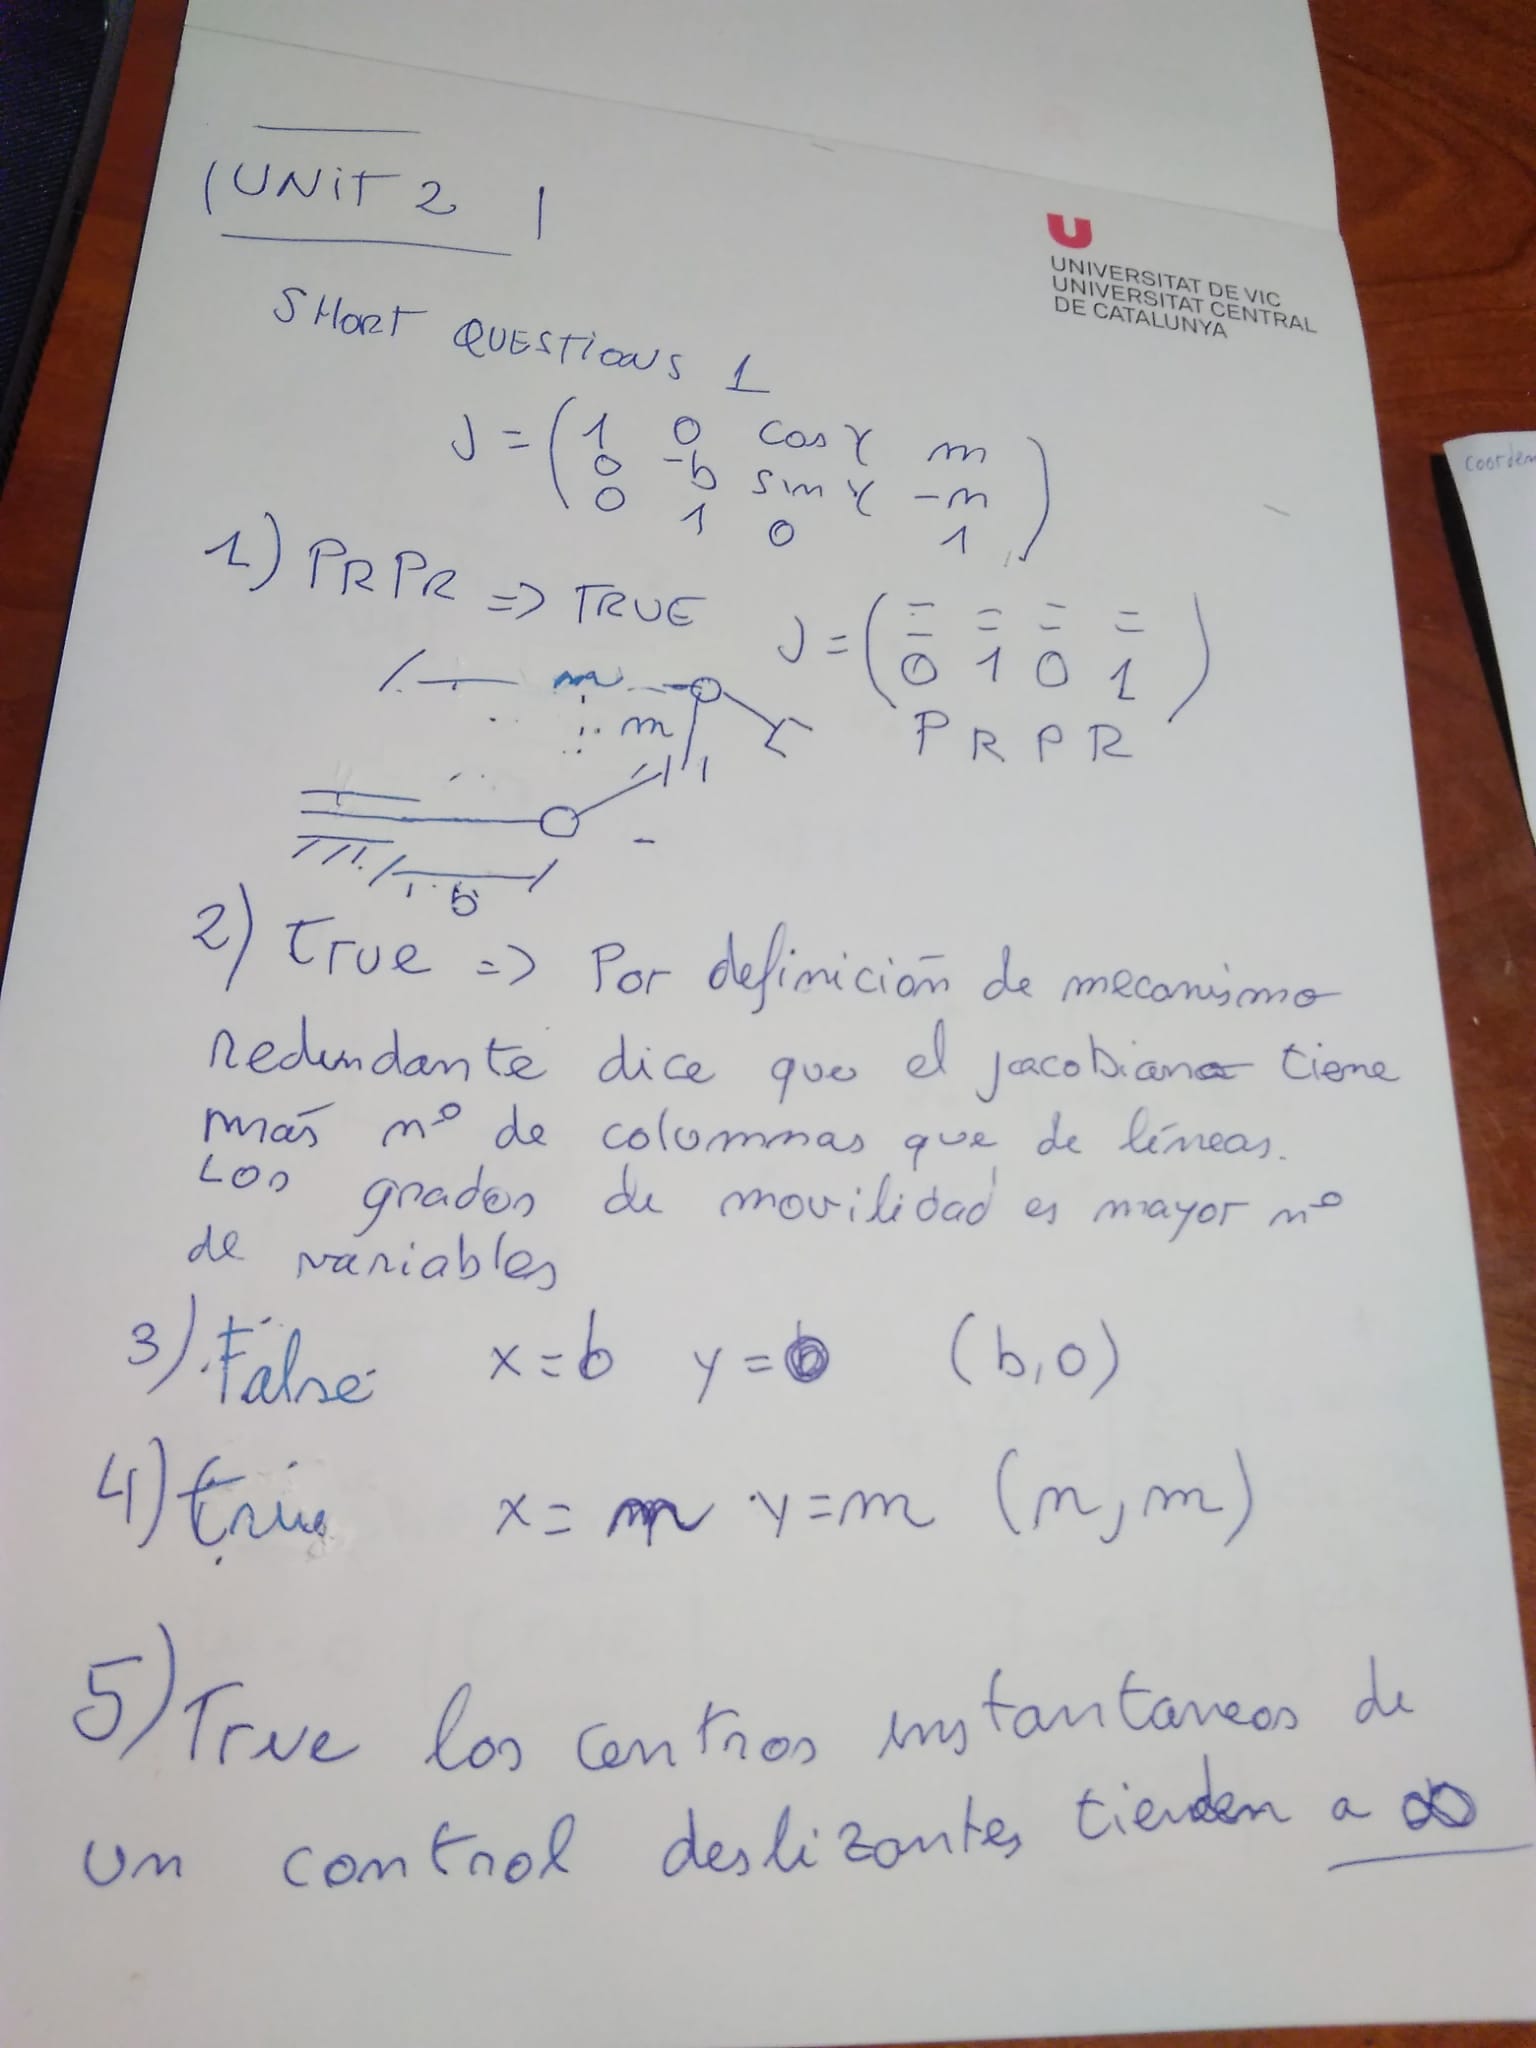 UNIT 2
UNIVERSITAT DE VIC
UNIVERSITAT CENTRAL
DE CATALUNYA
SHORT QUESTIONS 1
J = ( 1 0 cos γ m
0 -b sin γ -n
0 1 0 1 )
1) PRPR => TRUE
J = ( = = = =
0 1 0 1 )
P R P R
n
m
b
2) True => Por definición de mecanismo
redundante dice que el jacobiano tiene
más nº de columnas que de líneas.
Los grados de movilidad es mayor nº
de variables
3) False x = b y = 0 (b, 0)
4) true x = n y = m (n, m)
5) True los centros instantaneos de
un control deslizantes tienden a ∞
coorden